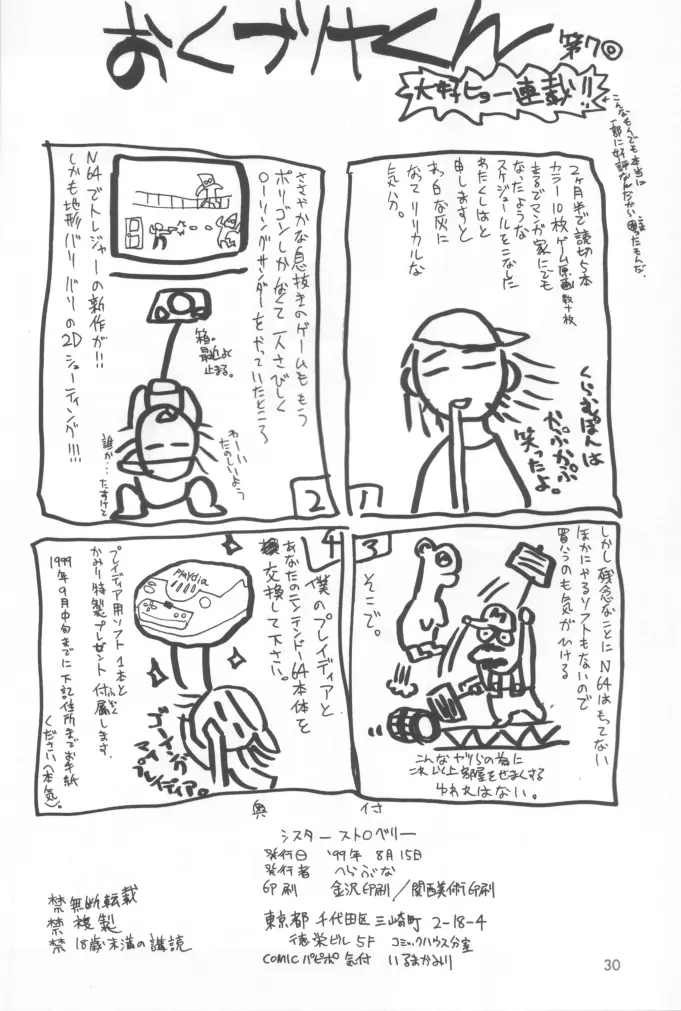 おくづけくん
第7◎
大好ヒョー連載!!
こんなもんでも本当に
一部に好評なんだから困ったもんだ。
1
2ヶ月半で読切5本
カラー10枚ゲーム原画数十枚
まるでマンガ家にでも
なったような
スケジュールをこなした
わたくしはと
申しますと
あっ白な灰に
なってリリカルな
気分。
くらむぽんは
かぷかぷ
笑ったよ。
2
ささやかな息抜きのゲームももう
ポリゴンしかなくて一人さびしく
ローリングサンダーをやっていたところ
N64でトレジャーの新作が!!
しかも地形バリバリの2Dシューティング!!!
箱。
最近よく
止まる。
わーい
たのしいよう
誰か…たすけて
3
しかし残念なことにN64はもってない
ほかにやるソフトもないので
買うのも気がひける
そこで。
こんなヤツらの為に
これ以上部屋をせまくする
われわれはない。
4
僕のプレイディアと
あなたのニンテンドー64本体を
交換して下さい。
Playdia
ゴーイング
マイ
プレイディア。
プレイディア用ソフト1本と
かみり特製プレゼント付属します。
1999年9月中旬までに下記住所までお手紙
ください(本気)。
奥付
シスターストロベリー
発行日 '99年 8月15日
発行者 へらぶな
印刷 金沢印刷/関西美術印刷
東京都千代田区三崎町 2-18-4
徳栄ビル5F コミックハウス分室
COMICパピポ気付 いるまかみり
禁 無断転載
禁 複製
禁 18歳未満の講読
30